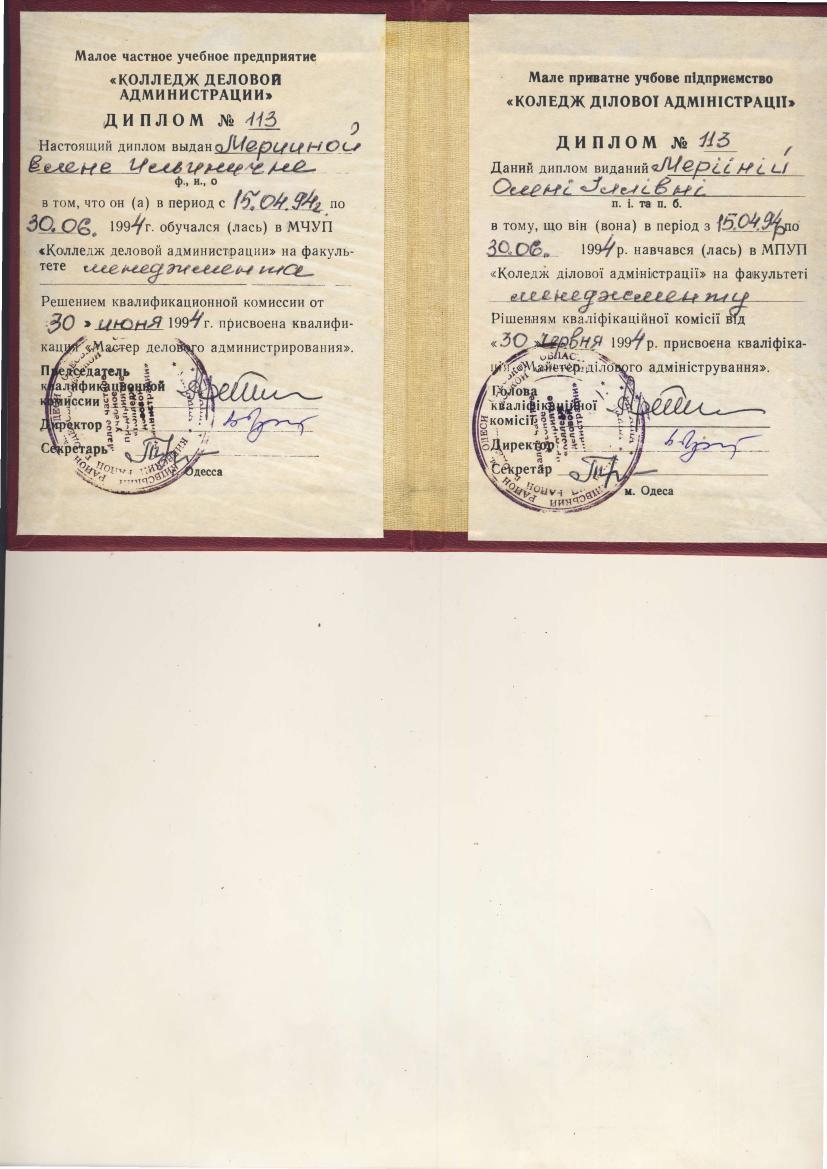 Малое частное учебное предприятие
«КОЛЛЕДЖ ДЕЛОВОЙ
АДМИНИСТРАЦИИ»
ДИПЛОМ № 113
Настоящий диплом выдан Мерииной
Елене Ильиничне
ф., и., о
в том, что он (а) в период с 15.04.94г. по
30.06. 1994г. обучался (лась) в МЧУП
«Колледж деловой администрации» на факуль-
тете менеджмента
Решением квалификационной комиссии от
«30» июня 1994г. присвоена квалифи-
кация «Мастер делового администрирования».
Председатель
квалификационной
комиссии
Директор
Секретарь
Одесса
Мале приватне учбове підприємство
«КОЛЕДЖ ДІЛОВОЇ АДМІНІСТРАЦІЇ»
ДИПЛОМ № 113
Даний диплом виданий Меріїній
Олені Іллівні
п. і. та п. б.
в тому, що він (вона) в період з 15.04.94р по
30.06. 1994р. навчався (лась) в МПУП
«Коледж ділової адміністрації» на факультеті
менеджменту
Рішенням кваліфікаційної комісії від
«30» червня 1994р. присвоєна кваліфіка-
ція «Майстер ділового адміністрування».
Голова
кваліфікаційної
комісії
Директор
Секретар
м. Одеса